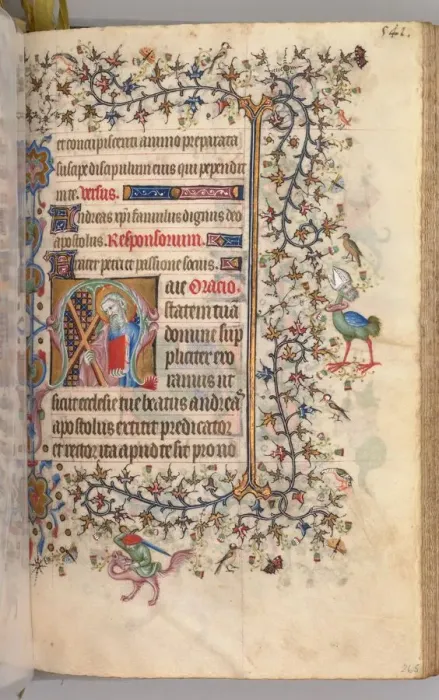 541.
et concupiscenti animo preparata
suscipe discipulum eius qui pependit
in te. Versus.
Andreas xpi famulus dignus deo
apostolus. Responsorium.
Frater petri et passione socius.
aie Oracio.
statem tua
domine sup
pliciter exo
ramus ut
sicut ecclesie tue beatus andreas
apostolus extitit predicator
et rector ita apud te sit pro no